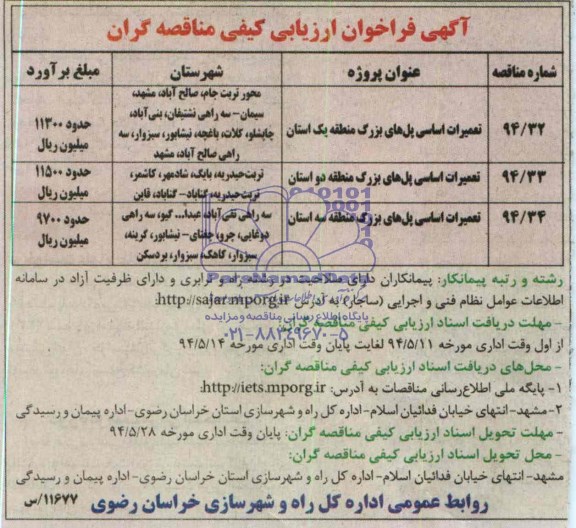 آگهی فراخوان ارزیابی کیفی مناقصه گران
شماره مناقصه
عنوان پروژه
شهرستان
مبلغ برآورد
۹۴/۳۲
تعمیرات اساسی پل‌های بزرگ منطقه یک استان
محور تربت جام، صالح آباد، مشهد،
سیمان- سه راهی نشتیفان، بنی‌آباد،
چاپشلو، کلات، باغچه، نیشابور، سبزوار، سه
راهی صالح آباد، مشهد
حدود ۱۱۳۰۰
میلیون ریال
۹۴/۳۳
تعمیرات اساسی پل‌های بزرگ منطقه دو استان
تربت‌حیدریه، بایگ، شادمهر، کاشمر،
تربت‌حیدریه، گناباد- گناباد، قاین
حدود ۱۱۵۰۰
میلیون ریال
۹۴/۳۴
تعمیرات اساسی پل‌های بزرگ منطقه سه استان
سه راهی تقی‌آباد، عبدا... گیو، سه راهی
دوغایی، چرو، جغتای- نیشابور، گرینه،
سبزوار، کاهک، سبزوار، بردسکن
حدود ۹۷۰۰
میلیون ریال
رشته و رتبه پیمانکار: پیمانکاران دارای صلاحیت در رشته راه و ترابری و دارای ظرفیت آزاد در سامانه
اطلاعات عوامل نظام فنی و اجرایی (ساجار) به آدرس http://sajar.mporg.ir:
پایگاه اطلاع رسانی مناقصه و مزایده
- مهلت دریافت اسناد ارزیابی کیفی مناقصه گران:
۰۲۱-۸۸۳۴۹۶۷۰-۵
از اول وقت اداری مورخه ۹۴/۵/۱۱ لغایت پایان وقت اداری مورخه ۹۴/۵/۱۴
- محل‌های دریافت اسناد ارزیابی کیفی مناقصه گران:
۱- پایگاه ملی اطلاع‌رسانی مناقصات به آدرس: http://iets.mporg.ir:
۲- مشهد- انتهای خیابان فدائیان اسلام- اداره کل راه و شهرسازی استان خراسان رضوی- اداره پیمان و رسیدگی
- مهلت تحویل اسناد ارزیابی کیفی مناقصه گران: پایان وقت اداری مورخه ۹۴/۵/۲۸
- محل تحویل اسناد ارزیابی کیفی مناقصه گران:
مشهد- انتهای خیابان فدائیان اسلام- اداره کل راه و شهرسازی استان خراسان رضوی- اداره پیمان و رسیدگی
روابط عمومی اداره کل راه و شهرسازی خراسان رضوی
۱۱۶۷۷/س